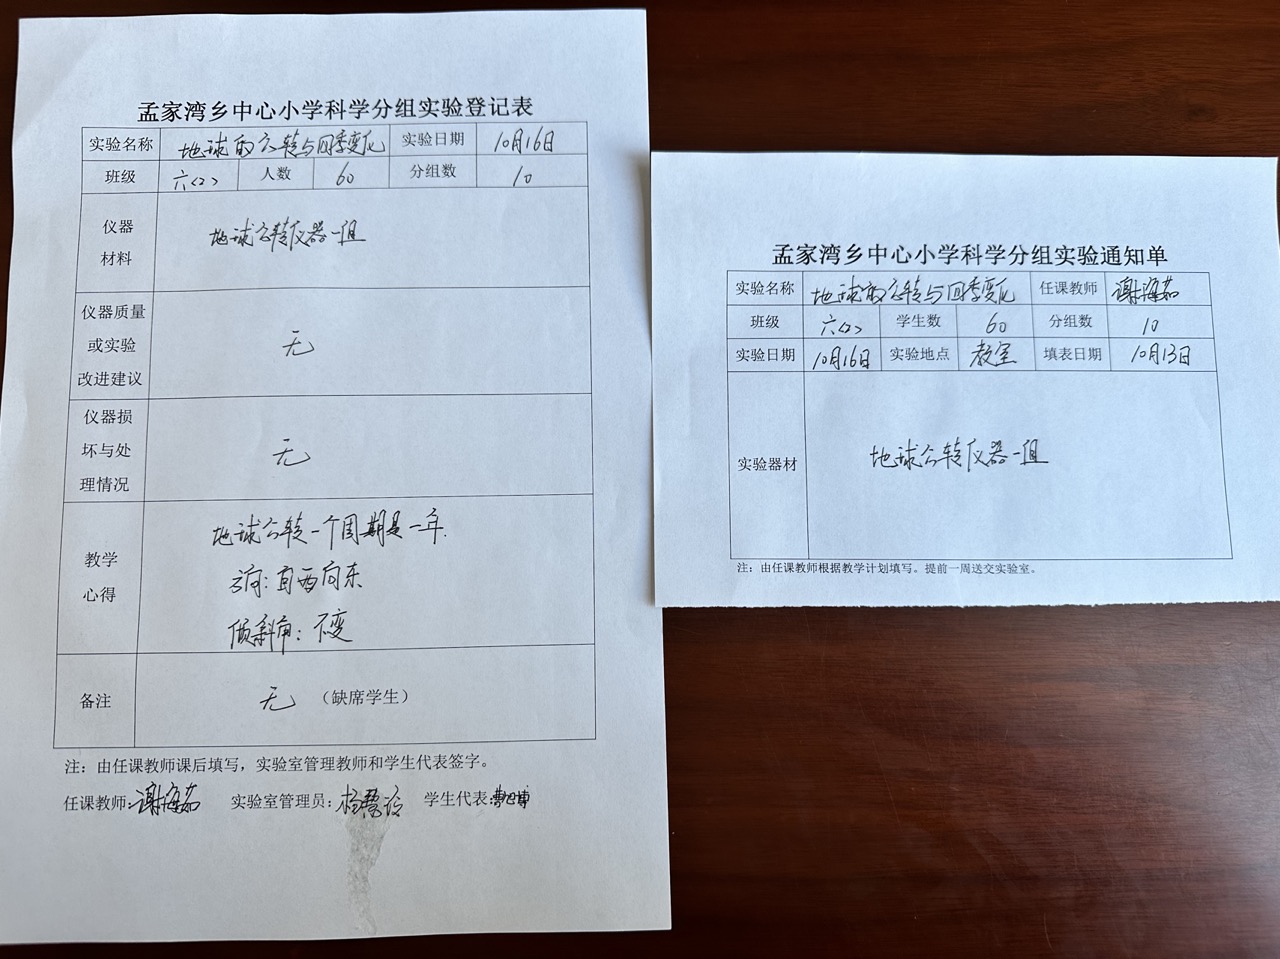 孟家湾乡中心小学科学分组实验登记表
实验名称 地球的公转与四季变化 实验日期 10月16日
班级 六(2) 人数 60 分组数 10
仪器
材料
地球公转仪器一组
仪器质量
或实验
改进建议
无
仪器损
坏与处
理情况
无
教学
心得
地球公转一个周期是一年.
方向:自西向东
倾斜角:不变
备注 无 (缺席学生)
注:由任课教师课后填写,实验室管理教师和学生代表签字。
任课教师:谢海茹 实验室管理员: 学生代表:
孟家湾乡中心小学科学分组实验通知单
实验名称 地球的公转与四季变化 任课教师 谢海茹
班级 六(2) 学生数 60 分组数 10
实验日期 10月16日 实验地点 教室 填表日期 10月13日
实验器材 地球公转仪器一组
注:由任课教师根据教学计划填写。提前一周送交实验室。